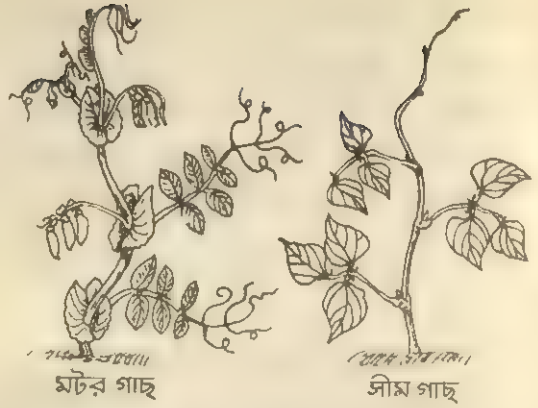 মটর গাছ
সীম গাছ